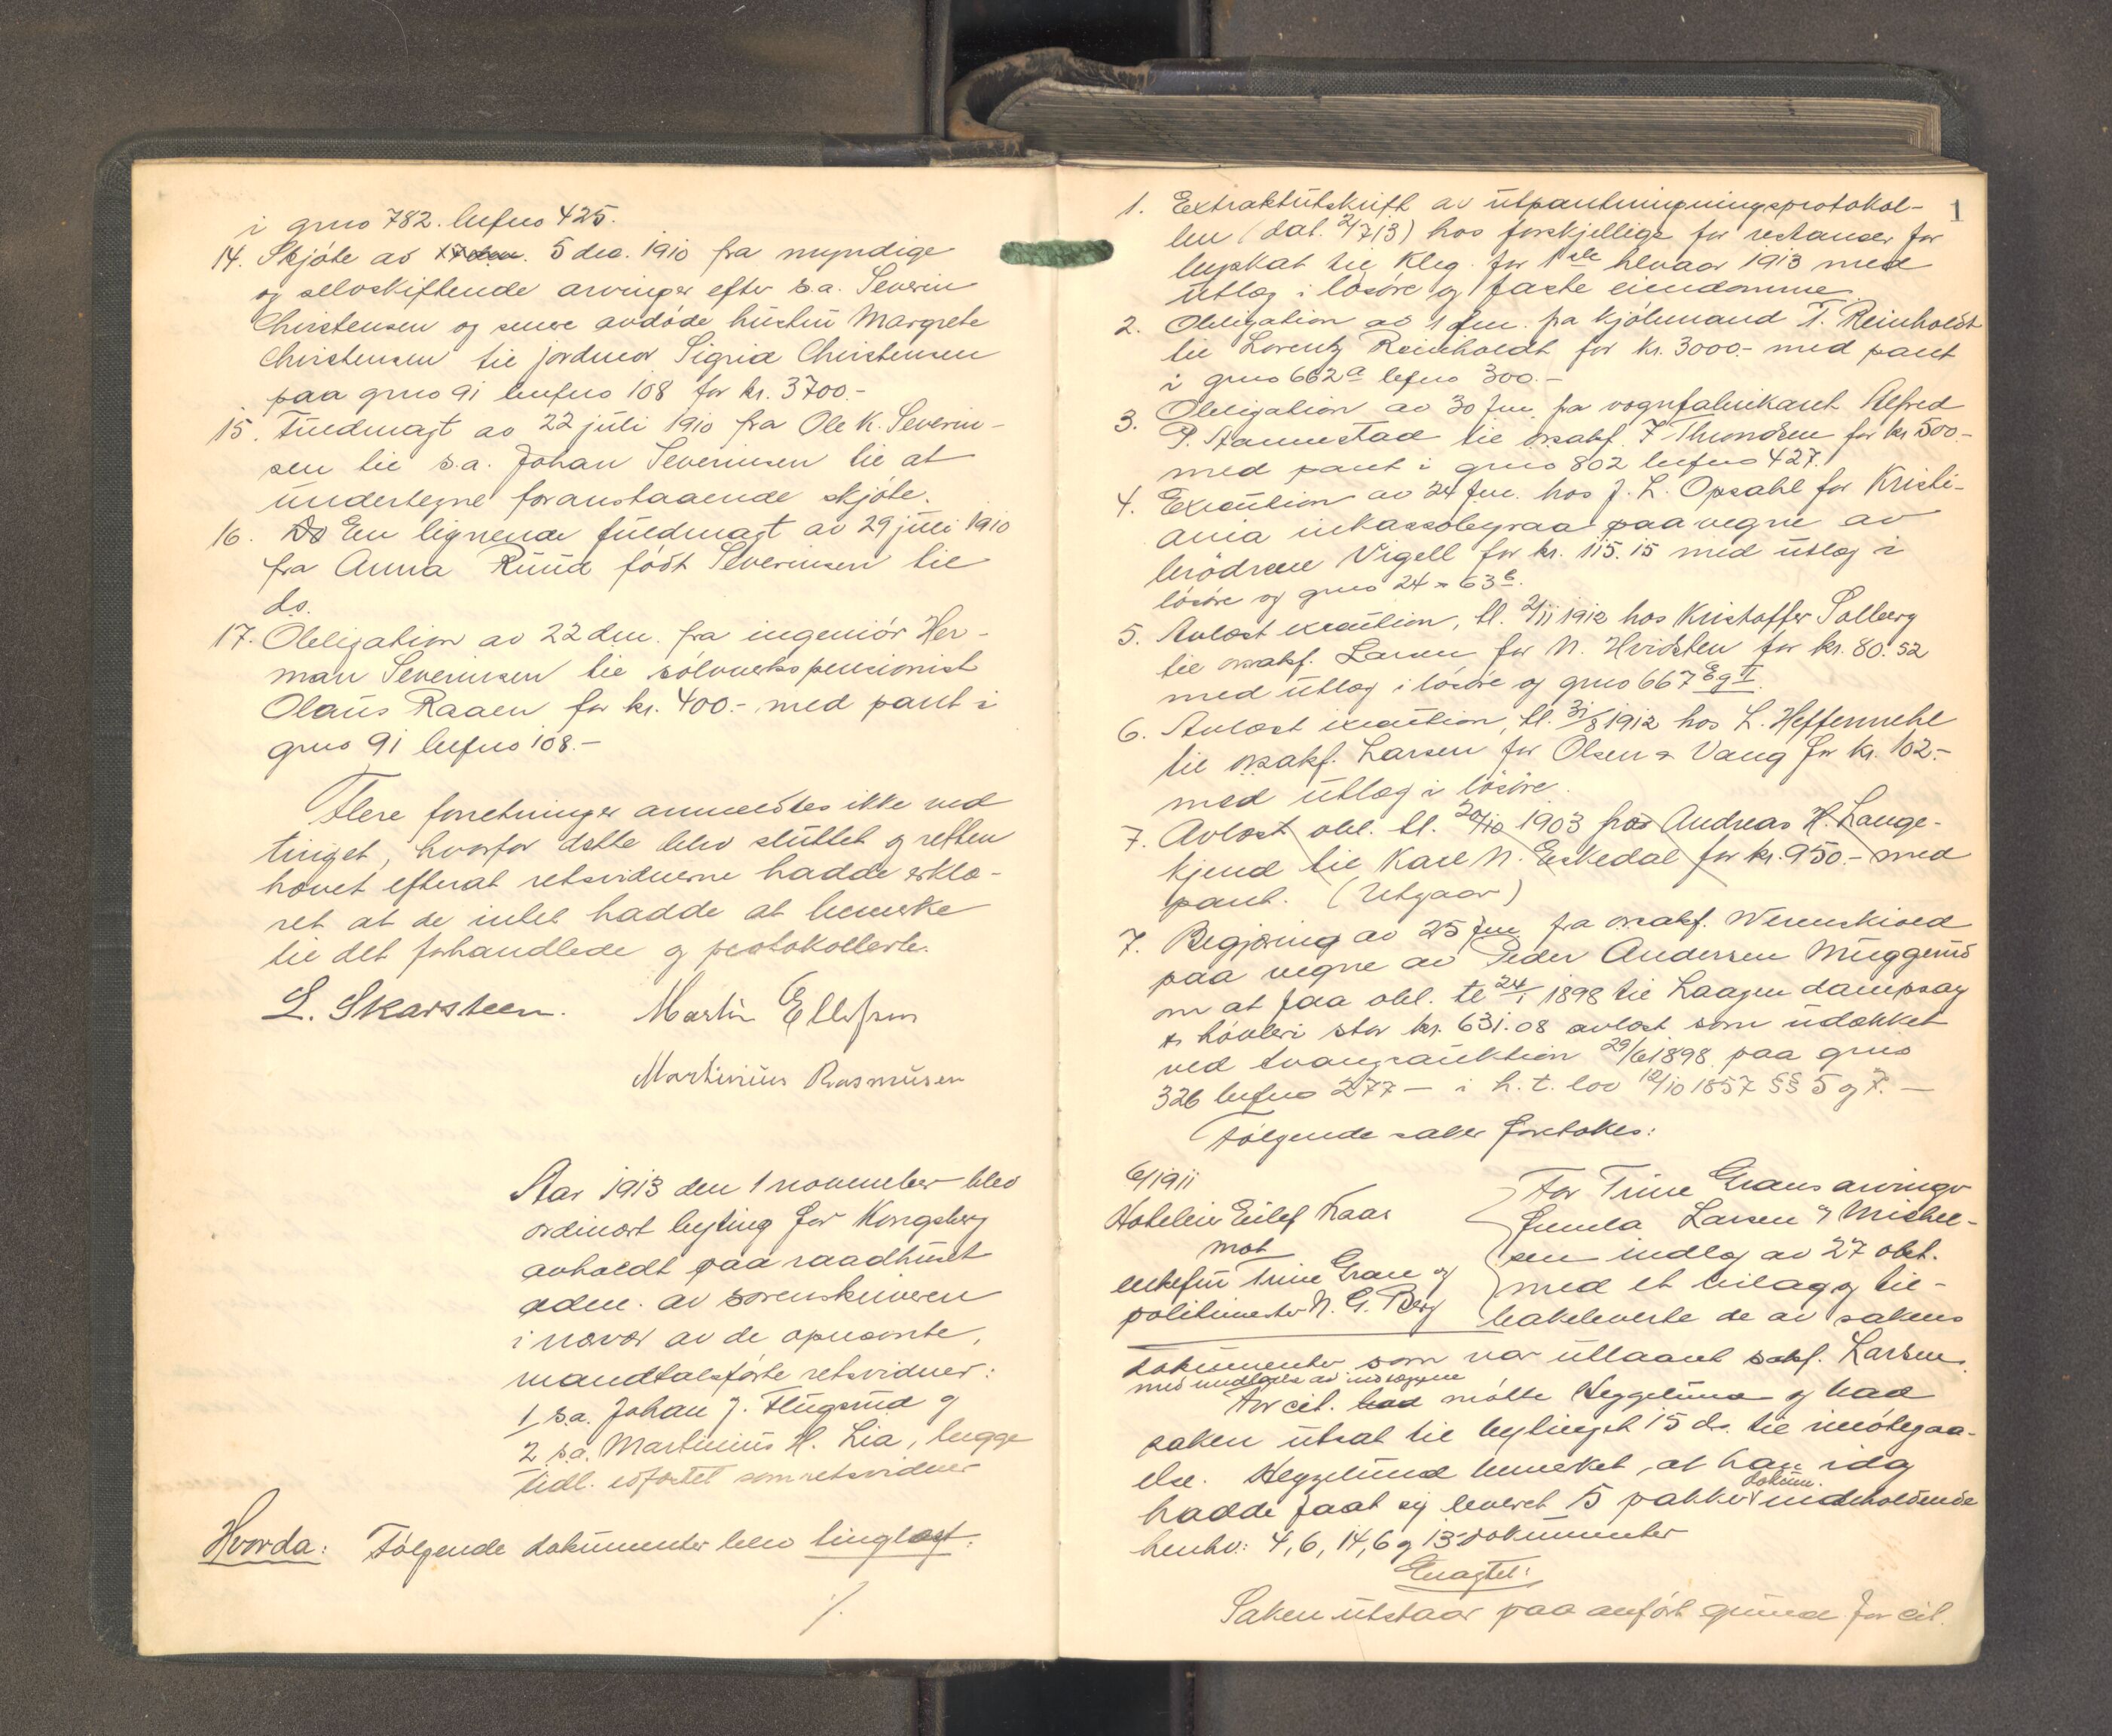 i gno 782 lufno 425.
14. Skjöte av 17 dm. 5 des. 1910 fra myndige
og selvskiftende arvinger efter s.a. Severin
Christensen og senere avdöde hustru Margrete
Christensen til jordmor Sigrid Christensen
paa gno 91 bufno 108 for kr. 3700.-
15. Fuldmagt av 22 juli 1910 fra Ole K. Severin-
sen til s.a. Johan Severinsen til at
undertegne foranstaaende skjöte.
16. Do En lignende fuldmagt av 29 juli 1910
fra Anna Ruud födt Severinsen til
do.
17. Obligation av 22 dm. fra ingeniör Her-
man Severinsen til sölvverkspensionist
Olaus Raaen for kr. 400.- med pant i
gno 91 bufno 108.-
Flere forretninger anmeldtes ikke ved
tinget, hvorfor dette blev sluttet og retten
hævet efterat retsvidnerne hadde erklæ-
ret at de intet hadde at bemerke
til det forhandlede og protokollerte.
L. Skarsteen. Martin Ellefsen
Martinius Rasmussen
Aar 1913 den 1 november blev
ordinært byting for Kongsberg
avholdt paa raadhuset
adm. av sorenskriveren
i nævær av de opnævnte,
mandtalsförte retsvidner:
1 s.a. Johan J. Flugsrud og
2 s.a. Martinius H. Lia, begge
tidl. edfæstet som retsvidner
Hvorda: Fölgende dokumenter blev tinglæst:
./.
1
1. Extraktutskrift av utpantningsprotokol-
len (dat. 2/7 13) hos forskjellige for restanser for
byskat til Kbg. for 1ste halvaar 1913 med
utlæg i lösöre og faste eiendomme
2. Obligation av 1 fm. fra kjöbmand T. Reinholdt
til Lorentz Reinholdt for kr. 3000.- med pant
i gno 662a bufno 300.-
3. Obligation av 30 fm. fra vognfabrikant Alfred
P. Stannestad til orsakf. F. Throndsen for kr 500.-
med pant i gno 802 bufno 427.
4. Execution av 24 fm. hos J. L. Opsahl for Kristi-
ania inkassobyraa paa vegne av
brödrene Vigell for kr. 115.15 med utlæg i
lösöre og gno 24 & 63b.
5. Avlæst execution, tl. 2/11 1912 hos Kristoffer Solberg
til orsakf. Larsen for N. Hvidsten for kr. 80.52
med utlæg i lösöre og gno 667 E g I.
6. Avlæst execution, tl. 31/8 1912 hos L. Heffermehl
til orsakf. Larsen for Olsen & Vang for kr. 102.-
med utlæg i lösöre.
7. Avlæst obl. tl. 20/10 1903 fra Andreas H. Lange-
kjend til Karl N. Eskedal for kr. 950.- med
pant. (Utgaar)
7. Begjæring av 25 fm. fra orsakf. Werenskiold
paa vegne av Peder Andersen Muggerud
om at faa obl. tl 24/1 1898 til Laagen dampsag
& hövleri stor kr. 631.08 avlæst som udækket
ved tvangsauktion 29/6 1898 paa gno
326 bufno 277 — i h. t. lov 12/10 1857 §§ 5 og 7. —
Fölgende saker foretokes:
6/1911
Hoteleier Eilef Kaas
mot
enkefru Trine Gran og
politimester N. G. Berg
For Trine Grans arvinger
fremla Larsen & Mickel-
sen indlæg av 27 okt.
med et bilag og til-
bakeleverte de av sakens
dokumenter som var utlaant sakf. Larsen.
med undtagelse av indlæggene
For cit. bad mötte Heggelund og bad
saken utsat til bytinget 15 ds. til imötegaa-
else. Heggelund bemerket, at han idag
hadde faat sig leveret 5 pakker dokum. indeholdende
henhv: 4, 6, 14, 6 og 13 dokumenter
Eragtet:
Saken utstaar paa anfört grund for cit.